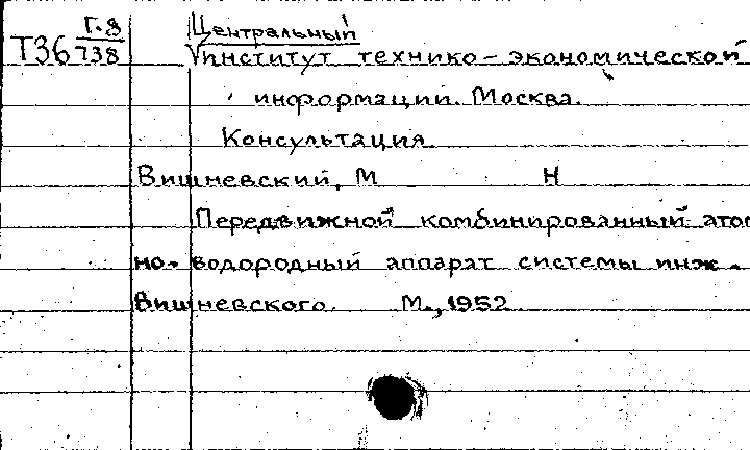 Т36 Г.8 Центральный
738 институт технико-экономической
информации. Москва.
Консультация
Вишневский, М Н
Передвижной комбинированный атом
но-водородный аппарат системы инж.
Вишневского. М., 1952